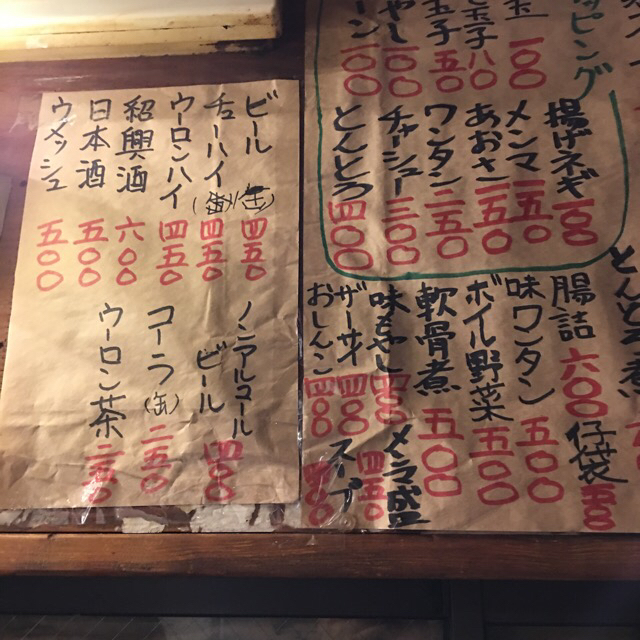 ッピング
玉
一〇〇
玉子
八〇
玉子
五〇
やし
一〇〇
ーン
一〇〇
揚げネギ
一〇〇
メンマ
一五〇
あおさ
一五〇
ワンタン
二〇〇
チャーシュー
三〇〇
とんとろ
四〇〇
腸詰
六〇〇
仔袋
味ワンタン
五〇〇
ボイル野菜
五〇〇
軟骨煮
五〇〇
味もやし
四〇〇
メンマ盛
四五〇
ザーサイ
四〇〇
スープ
おしんこ
四〇〇
ビール
四五〇
チューハイ
四五〇
ウーロンハイ
四五〇
紹興酒
六〇〇
日本酒
五〇〇
ウメッシュ
五〇〇
ノンアルコール
ビール
四〇〇
コーラ(缶)
二五〇
ウーロン茶
二五〇